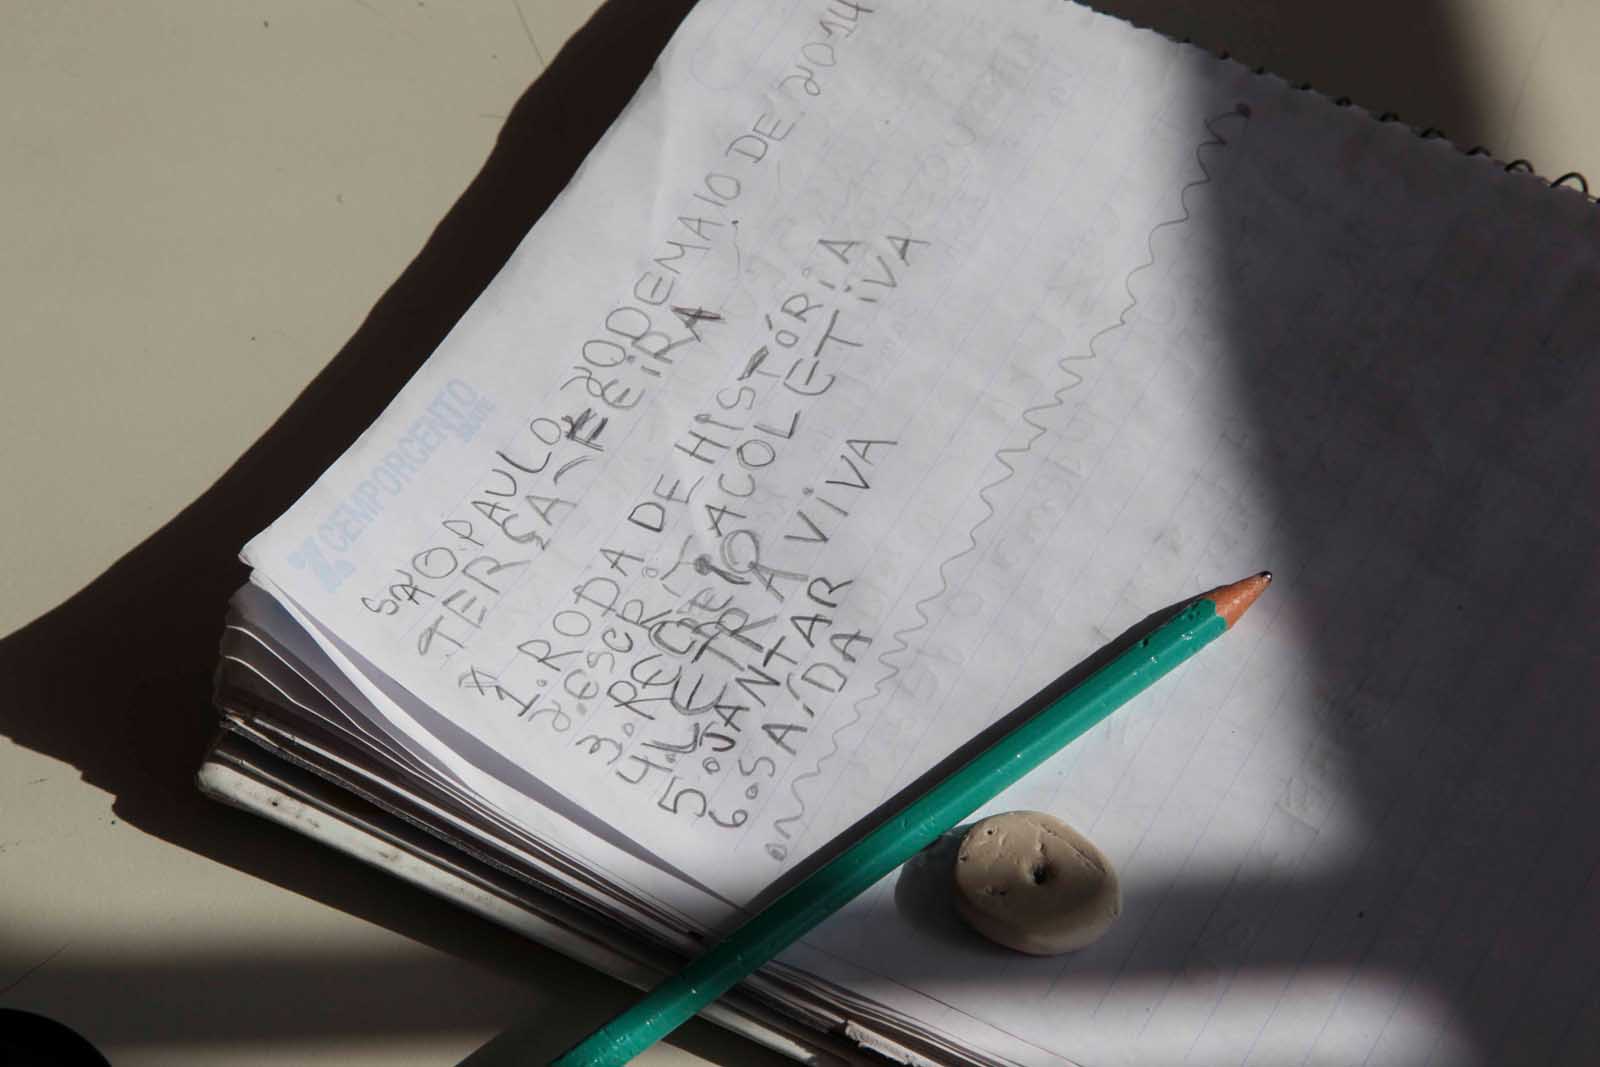 CEMPORCENTO
SÃO.PAULO, 20 DE MAIO DE 2014
TERÇA-FEIRA
1. RODA DE HISTÓRIA
2. ESCRITA COLETIVA
3. RECREIO
4. LETRA VIVA
5. JANTAR
6. SAÍDA